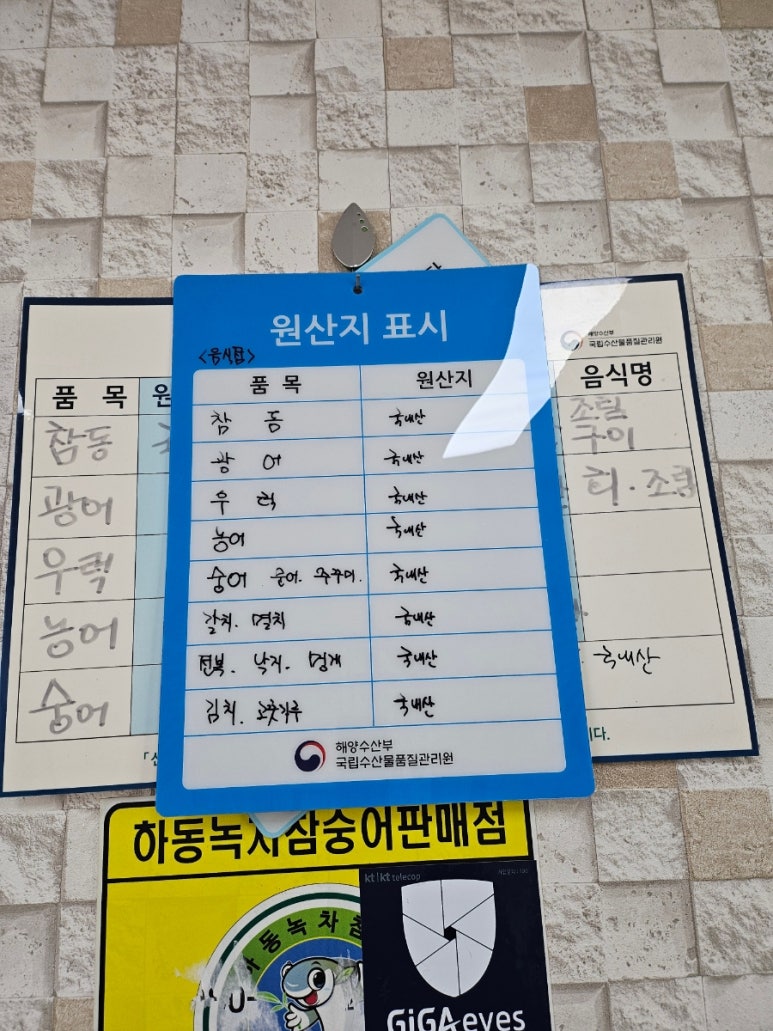 원산지 표시
<음식점>
품 목 원산지
참 돔 국내산
광 어 국내산
우 럭 국내산
농어 국내산
숭어 문어. 쭈꾸미. 국내산
갈치. 멸치 국내산
전복. 낙지. 멍게 국내산
김치. 고춧가루 국내산
해양수산부
국립수산물품질관리원
품 목 원
참동
광어
우럭
농어
숭어
해양수산부
국립수산물품질관리원
음식명
조림
구이
회·조림
국내산
니다.
하동녹차참숭어판매점
하동녹차참
kt kt telecop
GiGA eyes